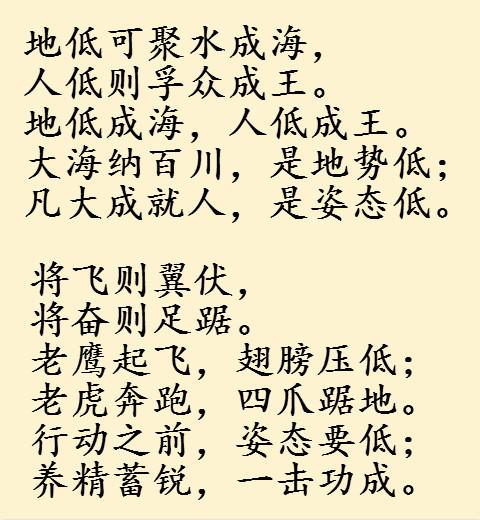 地低可聚水成海，
人低则孚众成王。
地低成海，人低成王。
大海纳百川，是地势低；
凡大成就人，是姿态低。
将飞则翼伏，
将奋则足踞。
老鹰起飞，翅膀压低；
老虎奔跑，四爪踞地。
行动之前，姿态要低；
养精蓄锐，一击功成。